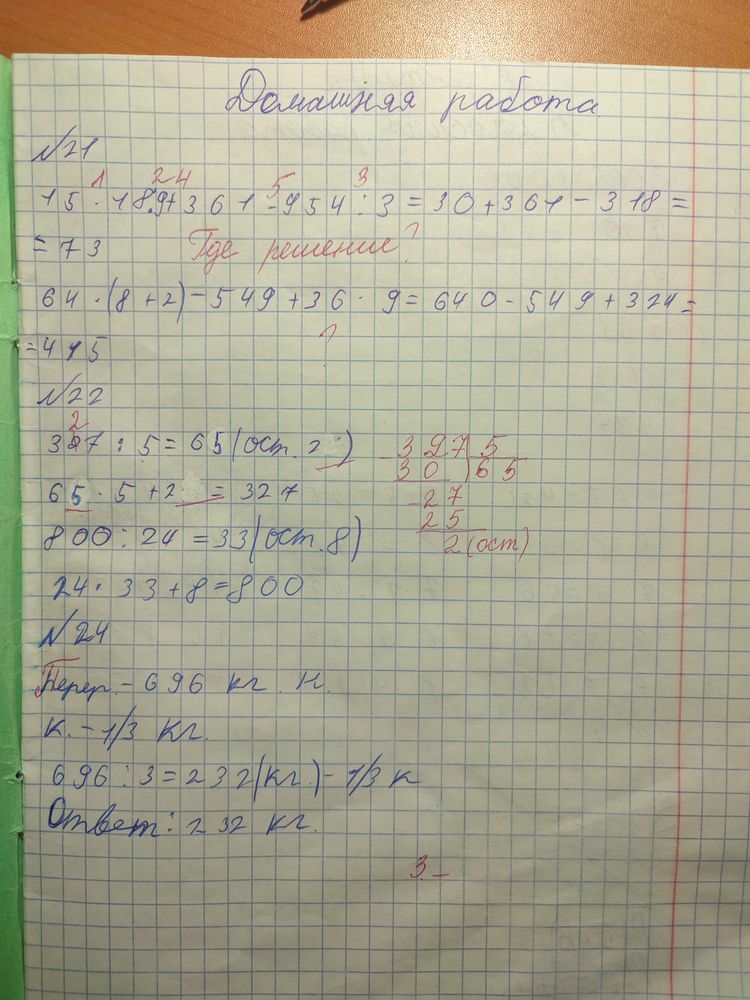 Домашняя работа
№21
1 24 5 3
15 · 18 : 9 + 361 - 954 : 3 = 30 + 361 - 318 =
= 73 Где решение?
64 · (8 + 2) - 549 + 36 · 9 = 640 - 549 + 324 =
= 415 ?
№22
2
327 : 5 = 65 (ост. 2) - 327 | 5
30 | 65
65 · 5 + 2 = 327 - 27
25
800 : 24 = 33 (ост. 8) 2 (ост)
24 · 33 + 8 = 800
№24
Перер. - 696 кг. Н.
К. - 1/3 кг.
696 : 3 = 232 (кг.) - 1/3 к
Ответ: 232 кг.
3 -